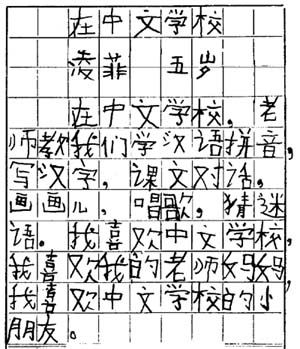 在中文学校
凌菲 五岁
在中文学校，老
师教我们学汉语拼音，
写汉字，课文对话。
画画儿，唱歌，猜谜
语。我喜欢中文学校，
我喜欢我的老师妈妈，
我喜欢中文学校的小
朋友。